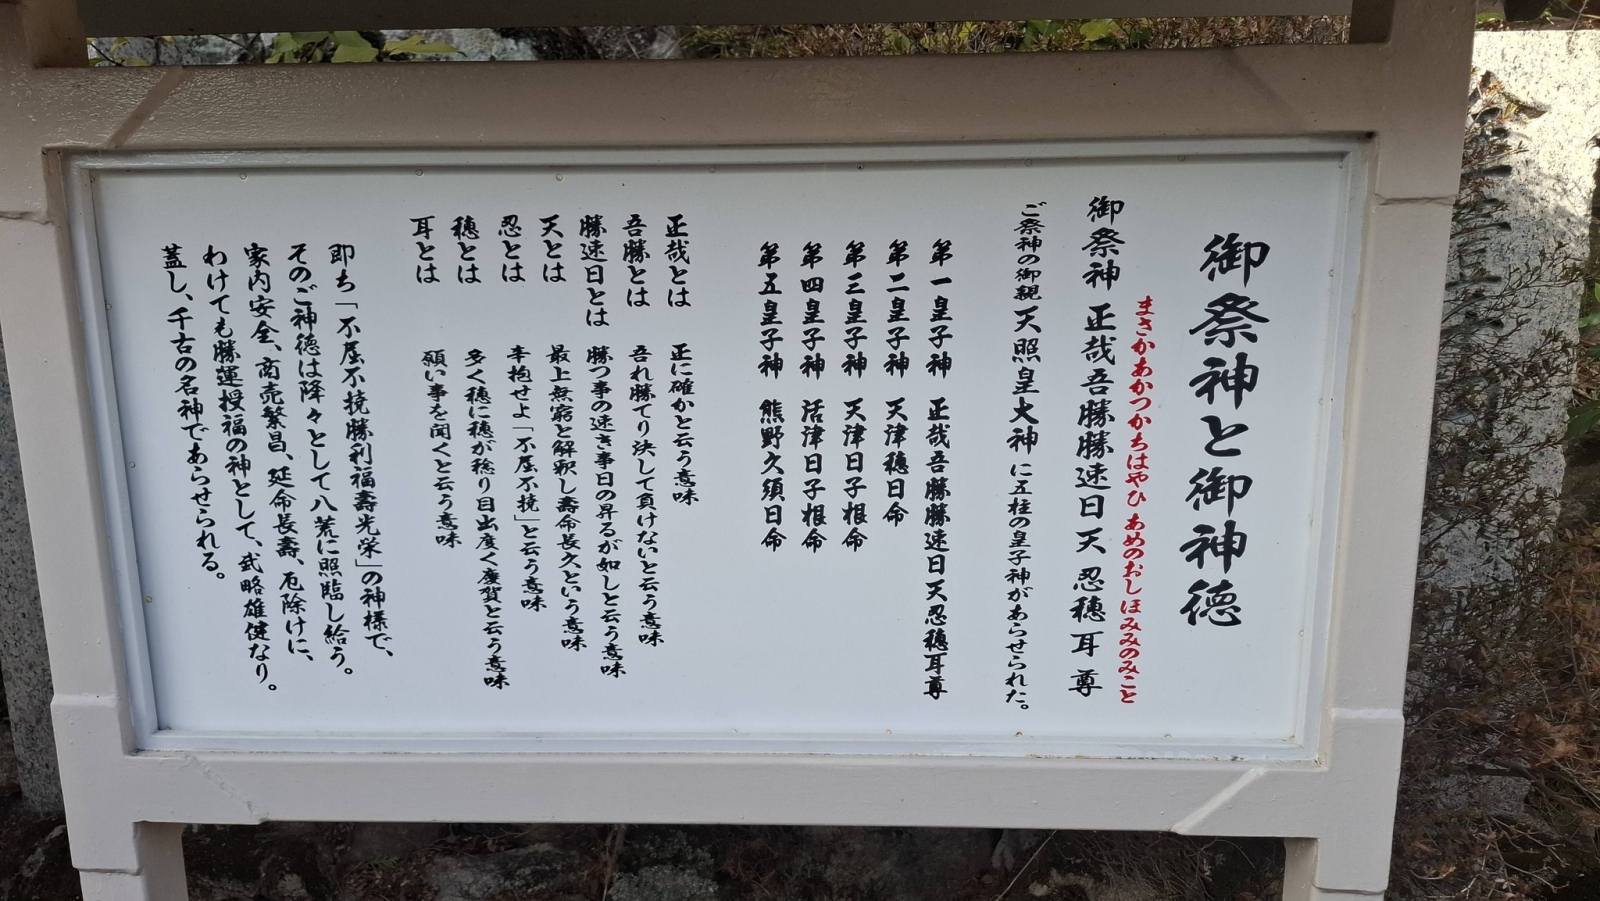 御祭神と御神徳
まさかあかつかちはやひ あめのおしほみみのみこと
御祭神 正哉吾勝勝速日天忍穂耳尊
ご祭神の御親天照皇大神に五柱の皇子神があらせられた。
第一皇子神 正哉吾勝勝速日天忍穂耳尊
第二皇子神 天津穂日命
第三皇子神 天津日子根命
第四皇子神 活津日子根命
第五皇子神 熊野久須日命
正哉とは 正に確かと云う意味
吾勝とは 吾れ勝てり決して負けないと云う意味
勝速日とは 勝つ事の速き事日の昇るが如しと云う意味
天とは 最上無窮と解釈し壽命長久という意味
忍とは 辛抱せよ「不屈不撓」と云う意味
穂とは 多く穂に穂が稔り目出度く慶賀と云う意味
耳とは 願い事を聞くと云う意味
即ち「不屈不撓勝利福壽光栄」の神様で、
そのご神徳は降々として八荒に照臨し給う。
家内安全、商売繁昌、延命長壽、厄除けに、
わけても勝運授福の神として、武略雄健なり。
蓋し、千古の名神であらせられる。